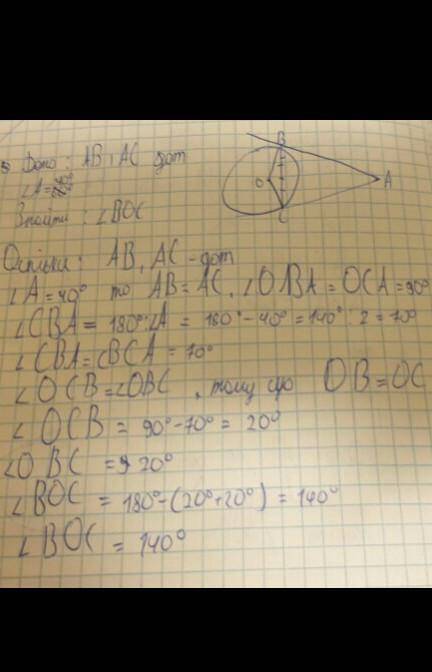 Дано: AB i AC дот
∠A=40°
Знайти: ∠BOC
B
O
A
C
Оскільки: AB, AC - дот
∠A = 40° то AB = AC, ∠OBA = OCA = 90°
∠CBA = 180°-∠A = 180° - 40° = 140° : 2 = 70°
∠CBA = ∠BCA = 70°
∠OCB = ∠OBC, тому що OB = OC
∠OCB = 90° - 70° = 20°
∠OBC = 20°
∠BOC = 180° - (20° + 20°) = 140°
∠BOC = 140°